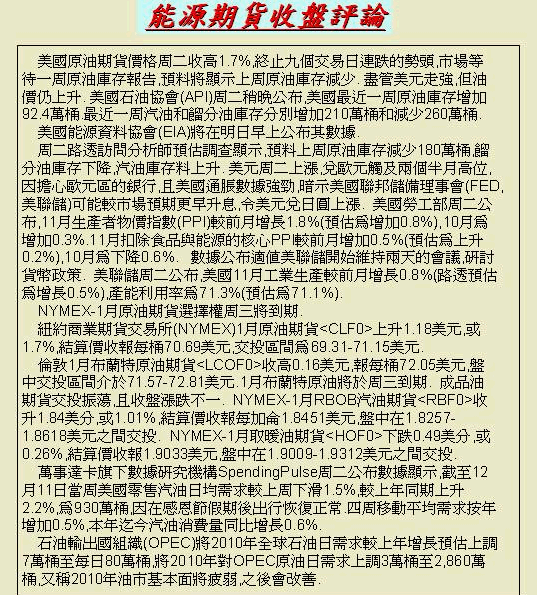 能源期貨收盤評論
美國原油期貨價格周二收高1.7%,終止九個交易日連跌的勢頭,市場等
待一周原油庫存報告,預料將顯示上周原油庫存減少. 盡管美元走強,但油
價仍上升. 美國石油協會(API)周二稍晚公布,美國最近一周原油庫存增加
92.4萬桶.最近一周汽油和餾分油庫存分別增加210萬桶和減少260萬桶.
美國能源資料協會(EIA)將在明日早上公布其數據.
周二路透訪問分析師預估調查顯示,預料上周原油庫存減少180萬桶,餾
分油庫存下降,汽油庫存料上升. 美元周二上漲,兌歐元觸及兩個半月高位,
因擔心歐元區的銀行,且美國通脹數據強勁,暗示美國聯邦儲備理事會(FED,
美聯儲)可能較市場預期更早升息,令美元兌日圓上漲. 美國勞工部周二公
布,11月生產者物價指數(PPI)較前月增長1.8%(預估爲增加0.8%),10月爲
增加0.3%.11月扣除食品與能源的核心PPI較前月增加0.5%(預估爲上升
0.2%),10月爲下降0.6%. 數據公布適值美聯儲開始維持兩天的會議,研討
貨幣政策. 美聯儲周二公布,美國11月工業生產較前月增長0.8%(路透預估
爲增長0.5%),產能利用率爲71.3%(預估爲71.1%).
NYMEX-1月原油期貨選擇權周三將到期.
紐約商業期貨交易所(NYMEX)1月原油期貨<CLF0>上升1.18美元,或
1.7%,結算價收報每桶70.69美元,交投區間爲69.31-71.15美元.
倫敦1月布蘭特原油期貨<LCOF0>收高0.16美元,報每桶72.05美元,盤
中交投區間介於71.57-72.81美元.1月布蘭特原油將於周三到期. 成品油
期貨交投振蕩,且收盤漲跌不一. NYMEX-1月RBOB汽油期貨<RBF0>收
升1.84美分,或1.01%,結算價收報每加侖1.8451美元,盤中在1.8257-
1.8618美元之間交投. NYMEX-1月取暖油期貨<HOF0>下跌0.49美分,或
0.26%,結算價收報1.9033美元,盤中在1.9009-1.9312美元之間交投.
萬事達卡旗下數據研究機構SpendingPulse周二公布數據顯示,截至12
月11日當周美國零售汽油日均需求較上周下滑1.5%,較上年同期上升
2.2%,爲930萬桶,因在感恩節假期後出行恢復正常.四周移動平均需求按年
增加0.5%,本年迄今汽油消費量同比增長0.6%.
石油輸出國組織(OPEC)將2010年全球石油日需求較上年增長預估上調
7萬桶至每日80萬桶,將2010年對OPEC原油日需求上調3萬桶至2,860萬
桶,又稱2010年油市基本面將疲弱,之後會改善.